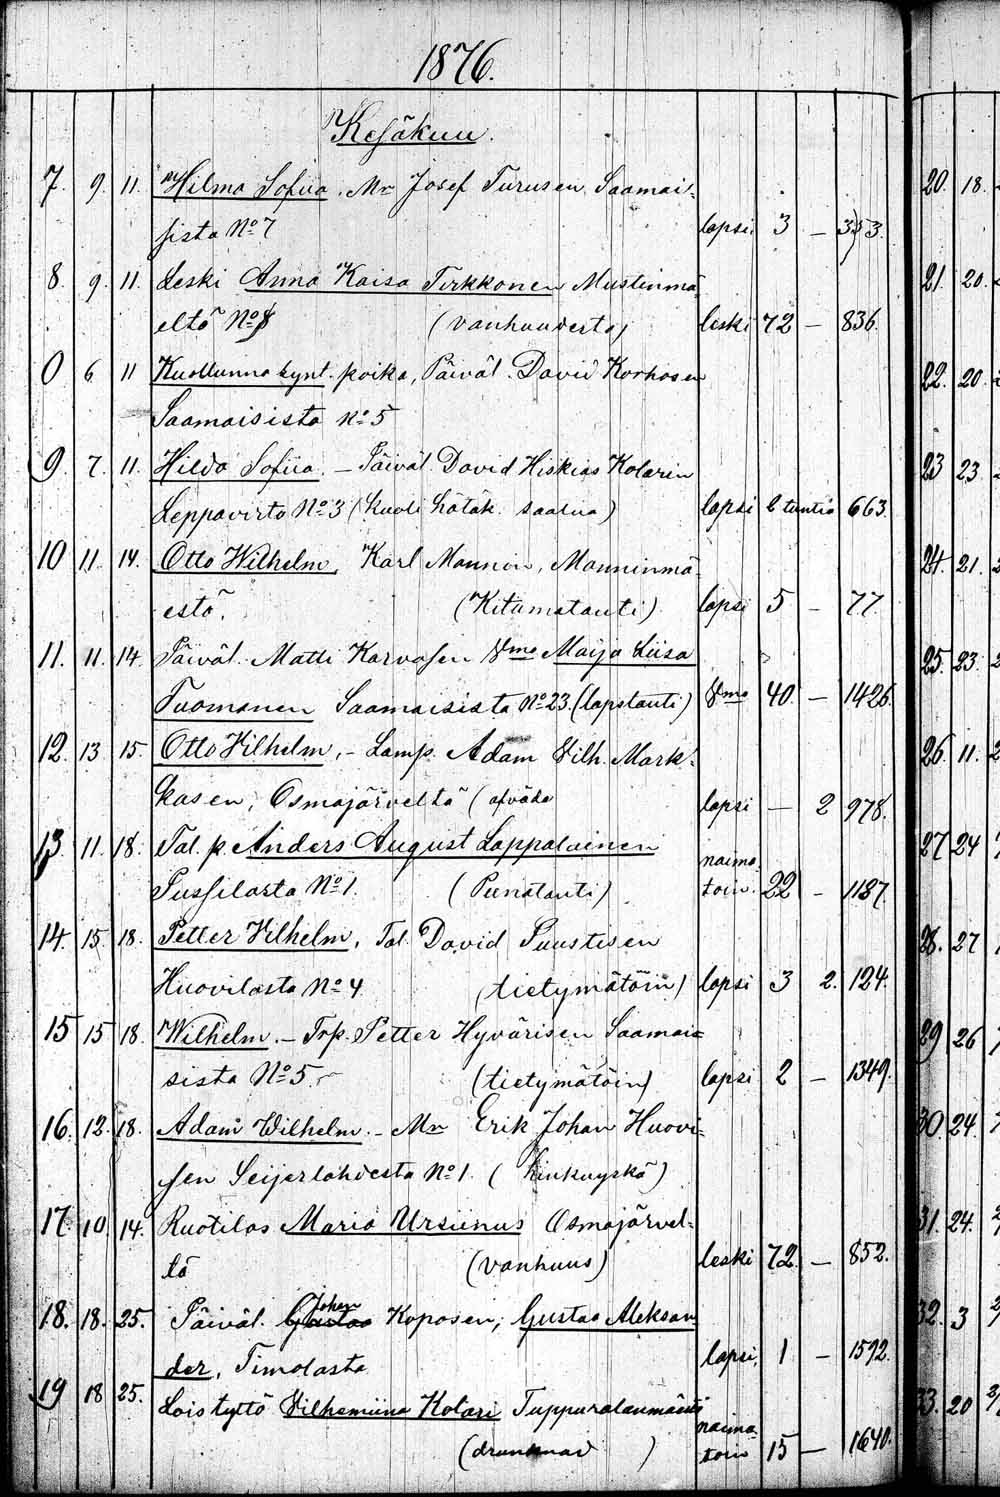 1876.
Kesäkuu.
7. 9. 11. Hilma Sofiia, Mr Josef Turusen Saamai-
sista No 7 lapsi. 3 — 353.
8. 9. 11. Leski Anna Kaisa Tirkkonen Mustinmä-
eltä No 8 (vanhuudesta) leski 72 — 836.
0 6 11 Kuollunna synt. poika, Päiväl. David Korhosen
Saamaisista No 5
9. 7. 11. Hilda Sofiia. — Päiväl. David Hiskias Kolarin
Leppävirta No 3 (kuoli hätäk. saatua) lapsi 2 tuntia 663.
10 11. 14. Otto Wilhelm, Karl Mannin, Manninmä-
estä. (Kitumatauti) lapsi 5 — 77
11. 11. 14. Päiväl. Matti Karvosen Vmo Maija Liisa
Tuomanen Saamaisista No 23. (lapstauti) Vmo 40. — 1426.
12. 13 15. Otto Vilhelm, – Lamp. Adam Vilh. Mark-
kasen, Osmajärveltä (ofväda lapsi — 2 978.
13. 11. 18. Tal. p. Anders August Lappalainen naima-
Pussilasta No 1. (Punatauti) toin. 22 — 1187.
14. 15. 18. Petter Vilhelm, Tal. David Puustisen
Huovilasta No 4 (tietymätöin) lapsi 3 2. 124.
15 15 18. Wilhelm. – Trp. Petter Hyvärisen Saamai-
sista No 5. (tietymätöin) lapsi 2 — 1349.
16. 12. 18. Adam Wilhelm. – Mr Erik Johan Huovi-
sen Seijerlahdesta No 1. (hinkuyskä)
17. 10. 14. Ruotilas Maria Ursinus Osmajärvel-
tä (vanhuus) leski 72. — 852.
18. 18. 25. Päiväl. Johan Koposen, Gustaa Aleksan
der, Timolasta lapsi, 1 — 1592.
19 18 25. Lois tyttö Vilhemiina Kolari Tuppuralanmäeltä naima-
(drunknad) toin 15 — 1640.
20. 18.
21. 20.
22. 20.
23 23.
24. 21.
25. 23.
26. 11.
27 24
28. 27
29 26
30. 24
31. 24.
32. 3
33. 20